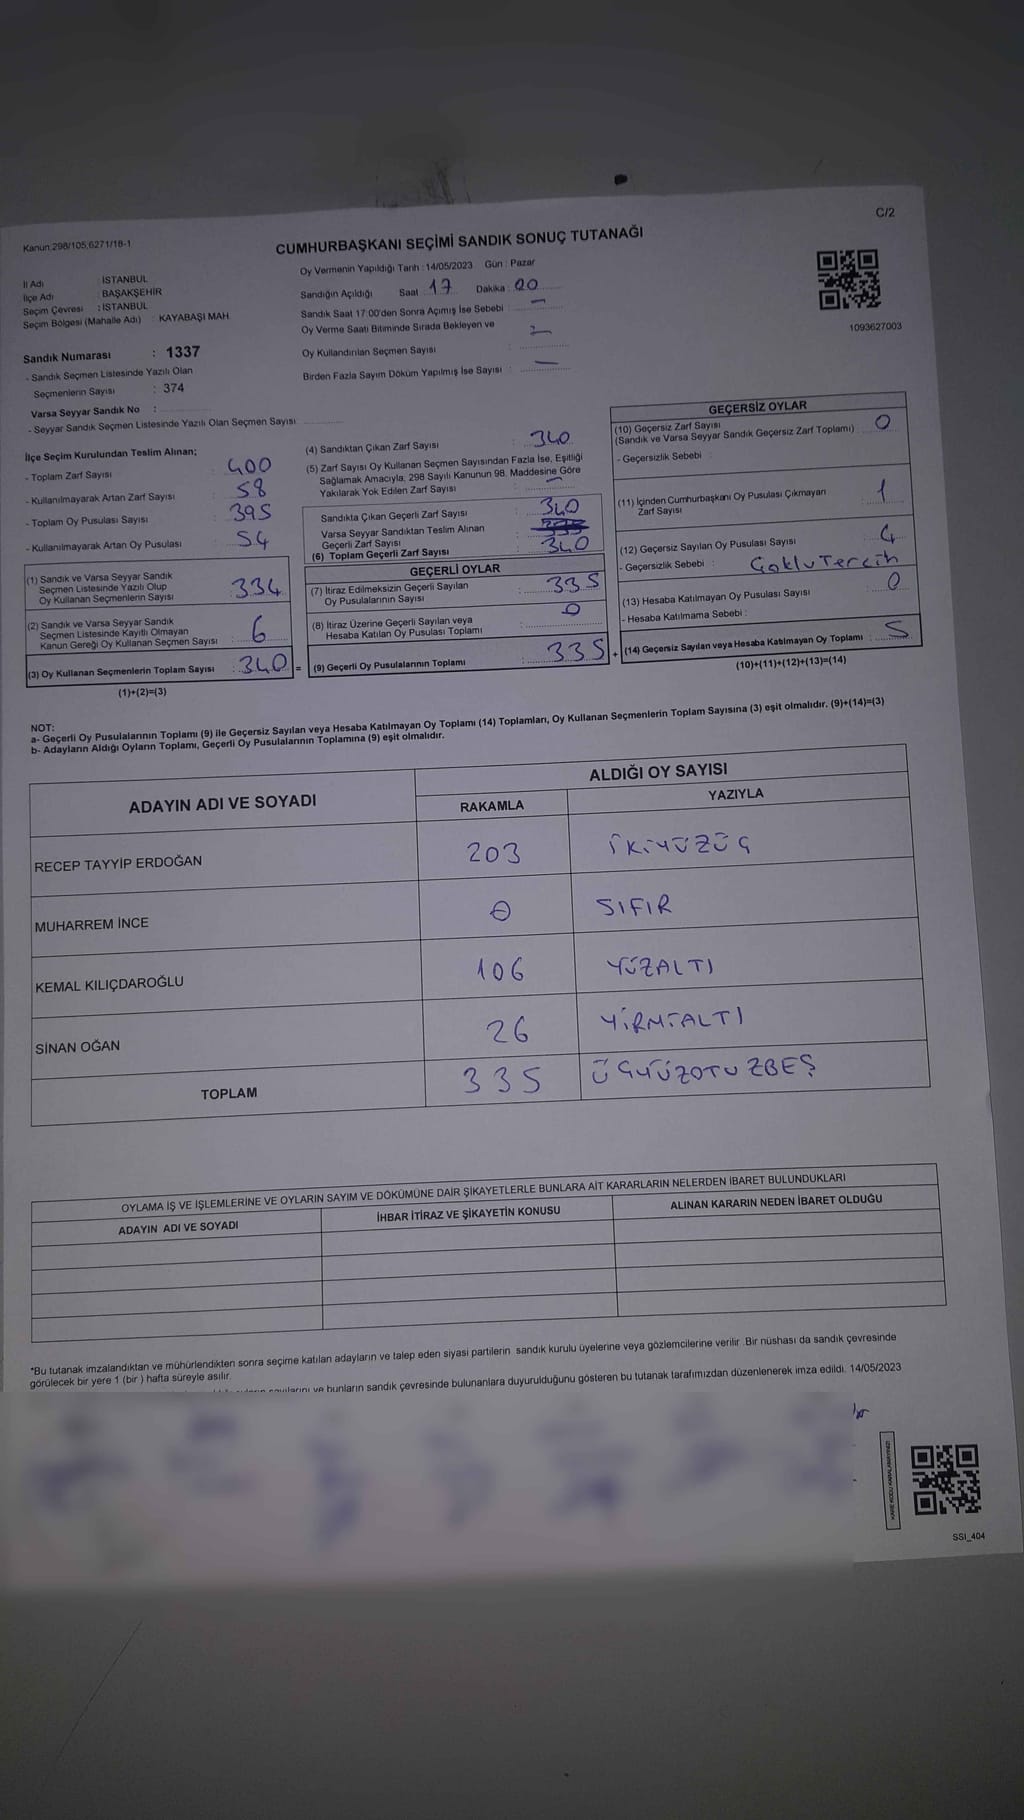 Kanun:298/105,6271/18-1
C/2
CUMHURBAŞKANI SEÇİMİ SANDIK SONUÇ TUTANAĞI
İl Adı : İSTANBUL
İlçe Adı : BAŞAKŞEHİR
Seçim Çevresi : İSTANBUL
Seçim Bölgesi (Mahalle Adı) : KAYABAŞI MAH
Sandık Numarası : 1337
- Sandık Seçmen Listesinde Yazılı Olan
Seçmenlerin Sayısı : 374
Varsa Seyyar Sandık No :
- Seyyar Sandık Seçmen Listesinde Yazılı Olan Seçmen Sayısı
Oy Vermenin Yapıldığı Tarih : 14/05/2023 Gün : Pazar
Sandığın Açıldığı Saat 17 Dakika : 00
Sandık Saat 17:00'den Sonra Açılmış İse Sebebi : —
Oy Verme Saati Bitiminde Sırada Bekleyen ve
Oy Kullandırılan Seçmen Sayısı :
Birden Fazla Sayım Döküm Yapılmış İse Sayısı : —
1093627003
İlçe Seçim Kurulundan Teslim Alınan;
- Toplam Zarf Sayısı : 400
- Kullanılmayarak Artan Zarf Sayısı : 58
- Toplam Oy Pusulası Sayısı : 395
- Kullanılmayarak Artan Oy Pusulası : 54
(1) Sandık ve Varsa Seyyar Sandık
Seçmen Listesinde Yazılı Olup
Oy Kullanan Seçmenlerin Sayısı : 334
(2) Sandık ve Varsa Seyyar Sandık
Seçmen Listesinde Kayıtlı Olmayan
Kanun Gereği Oy Kullanan Seçmen Sayısı : 6
(3) Oy Kullanan Seçmenlerin Toplam Sayısı : 340 =
(1)+(2)=(3)
(4) Sandıktan Çıkan Zarf Sayısı : 340
(5) Zarf Sayısı Oy Kullanan Seçmen Sayısından Fazla İse, Eşitliği
Sağlamak Amacıyla, 298 Sayılı Kanunun 98. Maddesine Göre
Yakılarak Yok Edilen Zarf Sayısı : —
Sandıkta Çıkan Geçerli Zarf Sayısı : 340
Varsa Seyyar Sandıktan Teslim Alınan
Geçerli Zarf Sayısı :
(6) Toplam Geçerli Zarf Sayısı : 340
GEÇERLİ OYLAR
(7) İtiraz Edilmeksizin Geçerli Sayılan
Oy Pusulalarının Sayısı : 335
(8) İtiraz Üzerine Geçerli Sayılan veya
Hesaba Katılan Oy Pusulası Toplamı : 0
(9) Geçerli Oy Pusulalarının Toplamı : 335 +
GEÇERSİZ OYLAR
(10) Geçersiz Zarf Sayısı
(Sandık ve Varsa Seyyar Sandık Geçersiz Zarf Toplamı) : 0
- Geçersizlik Sebebi :
(11) İçinden Cumhurbaşkanı Oy Pusulası Çıkmayan
Zarf Sayısı : 1
(12) Geçersiz Sayılan Oy Pusulası Sayısı : 4
- Geçersizlik Sebebi : Çoklu Tercih
(13) Hesaba Katılmayan Oy Pusulası Sayısı : 0
- Hesaba Katılmama Sebebi :
(14) Geçersiz Sayılan veya Hesaba Katılmayan Oy Toplamı : 5
(10)+(11)+(12)+(13)=(14)
NOT:
a- Geçerli Oy Pusulalarının Toplamı (9) ile Geçersiz Sayılan veya Hesaba Katılmayan Oy Toplamı (14) Toplamları, Oy Kullanan Seçmenlerin Toplam Sayısına (3) eşit olmalıdır. (9)+(14)=(3)
b- Adayların Aldığı Oyların Toplamı, Geçerli Oy Pusulalarının Toplamına (9) eşit olmalıdır.
ADAYIN ADI VE SOYADI ALDIĞI OY SAYISI
RAKAMLA YAZIYLA
RECEP TAYYİP ERDOĞAN 203 İKİYÜZÜÇ
MUHARREM İNCE 0 SIFIR
KEMAL KILIÇDAROĞLU 106 YÜZALTI
SİNAN OĞAN 26 YİRMİALTI
TOPLAM 335 ÜÇYÜZOTUZBEŞ
OYLAMA İŞ VE İŞLEMLERİNE VE OYLARIN SAYIM VE DÖKÜMÜNE DAİR ŞİKAYETLERLE BUNLARA AİT KARARLARIN NELERDEN İBARET BULUNDUKLARI
ADAYIN ADI VE SOYADI İHBAR İTİRAZ VE ŞİKAYETİN KONUSU ALINAN KARARIN NEDEN İBARET OLDUĞU
*Bu tutanak imzalandıktan ve mühürlendikten sonra seçime katılan adayların ve talep eden siyasi partilerin sandık kurulu üyelerine veya gözlemcilerine verilir. Bir nüshası da sandık çevresinde
görülecek bir yere 1 (bir ) hafta süreyle asılır.
ve bunların sandık çevresinde bulunanlara duyurulduğunu gösteren bu tutanak tarafımızdan düzenlenerek imza edildi. 14/05/2023
KARE KODU KARALAMAYINIZ!
SSI_404